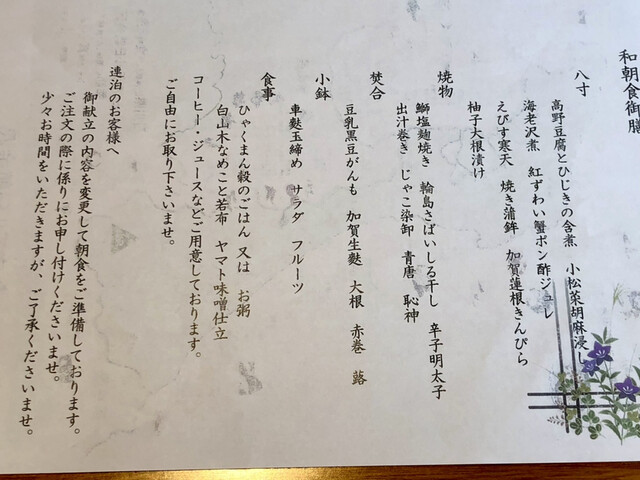 和朝食御膳
八寸
高野豆腐とひじきの含煮　小松菜胡麻浸し
海老沢煮　紅ずわい蟹ポン酢ジュレ
えびす寒天　焼き蒲鉾　加賀蓮根きんぴら
柚子大根漬け
焼物
鰤塩麹焼き　輪島さばいしる干し　辛子明太子
出汁巻き　じゃこ染卸　青唐　恥神
焚合
豆乳黒豆がんも　加賀生麩　大根　赤巻　蕗
小鉢
車麩玉締め　サラダ　フルーツ
食事
ひゃくまん穀のごはん　又は　お粥
白山木なめこと若布　ヤマト味噌仕立
コーヒー・ジュースなどご用意しております。
ご自由にお取り下さいませ。
連泊のお客様へ
御献立の内容を変更して朝食をご準備しております。
ご注文の際に係りにお申し付けくださいませ。
少々お時間をいただきますが、ご了承くださいませ。